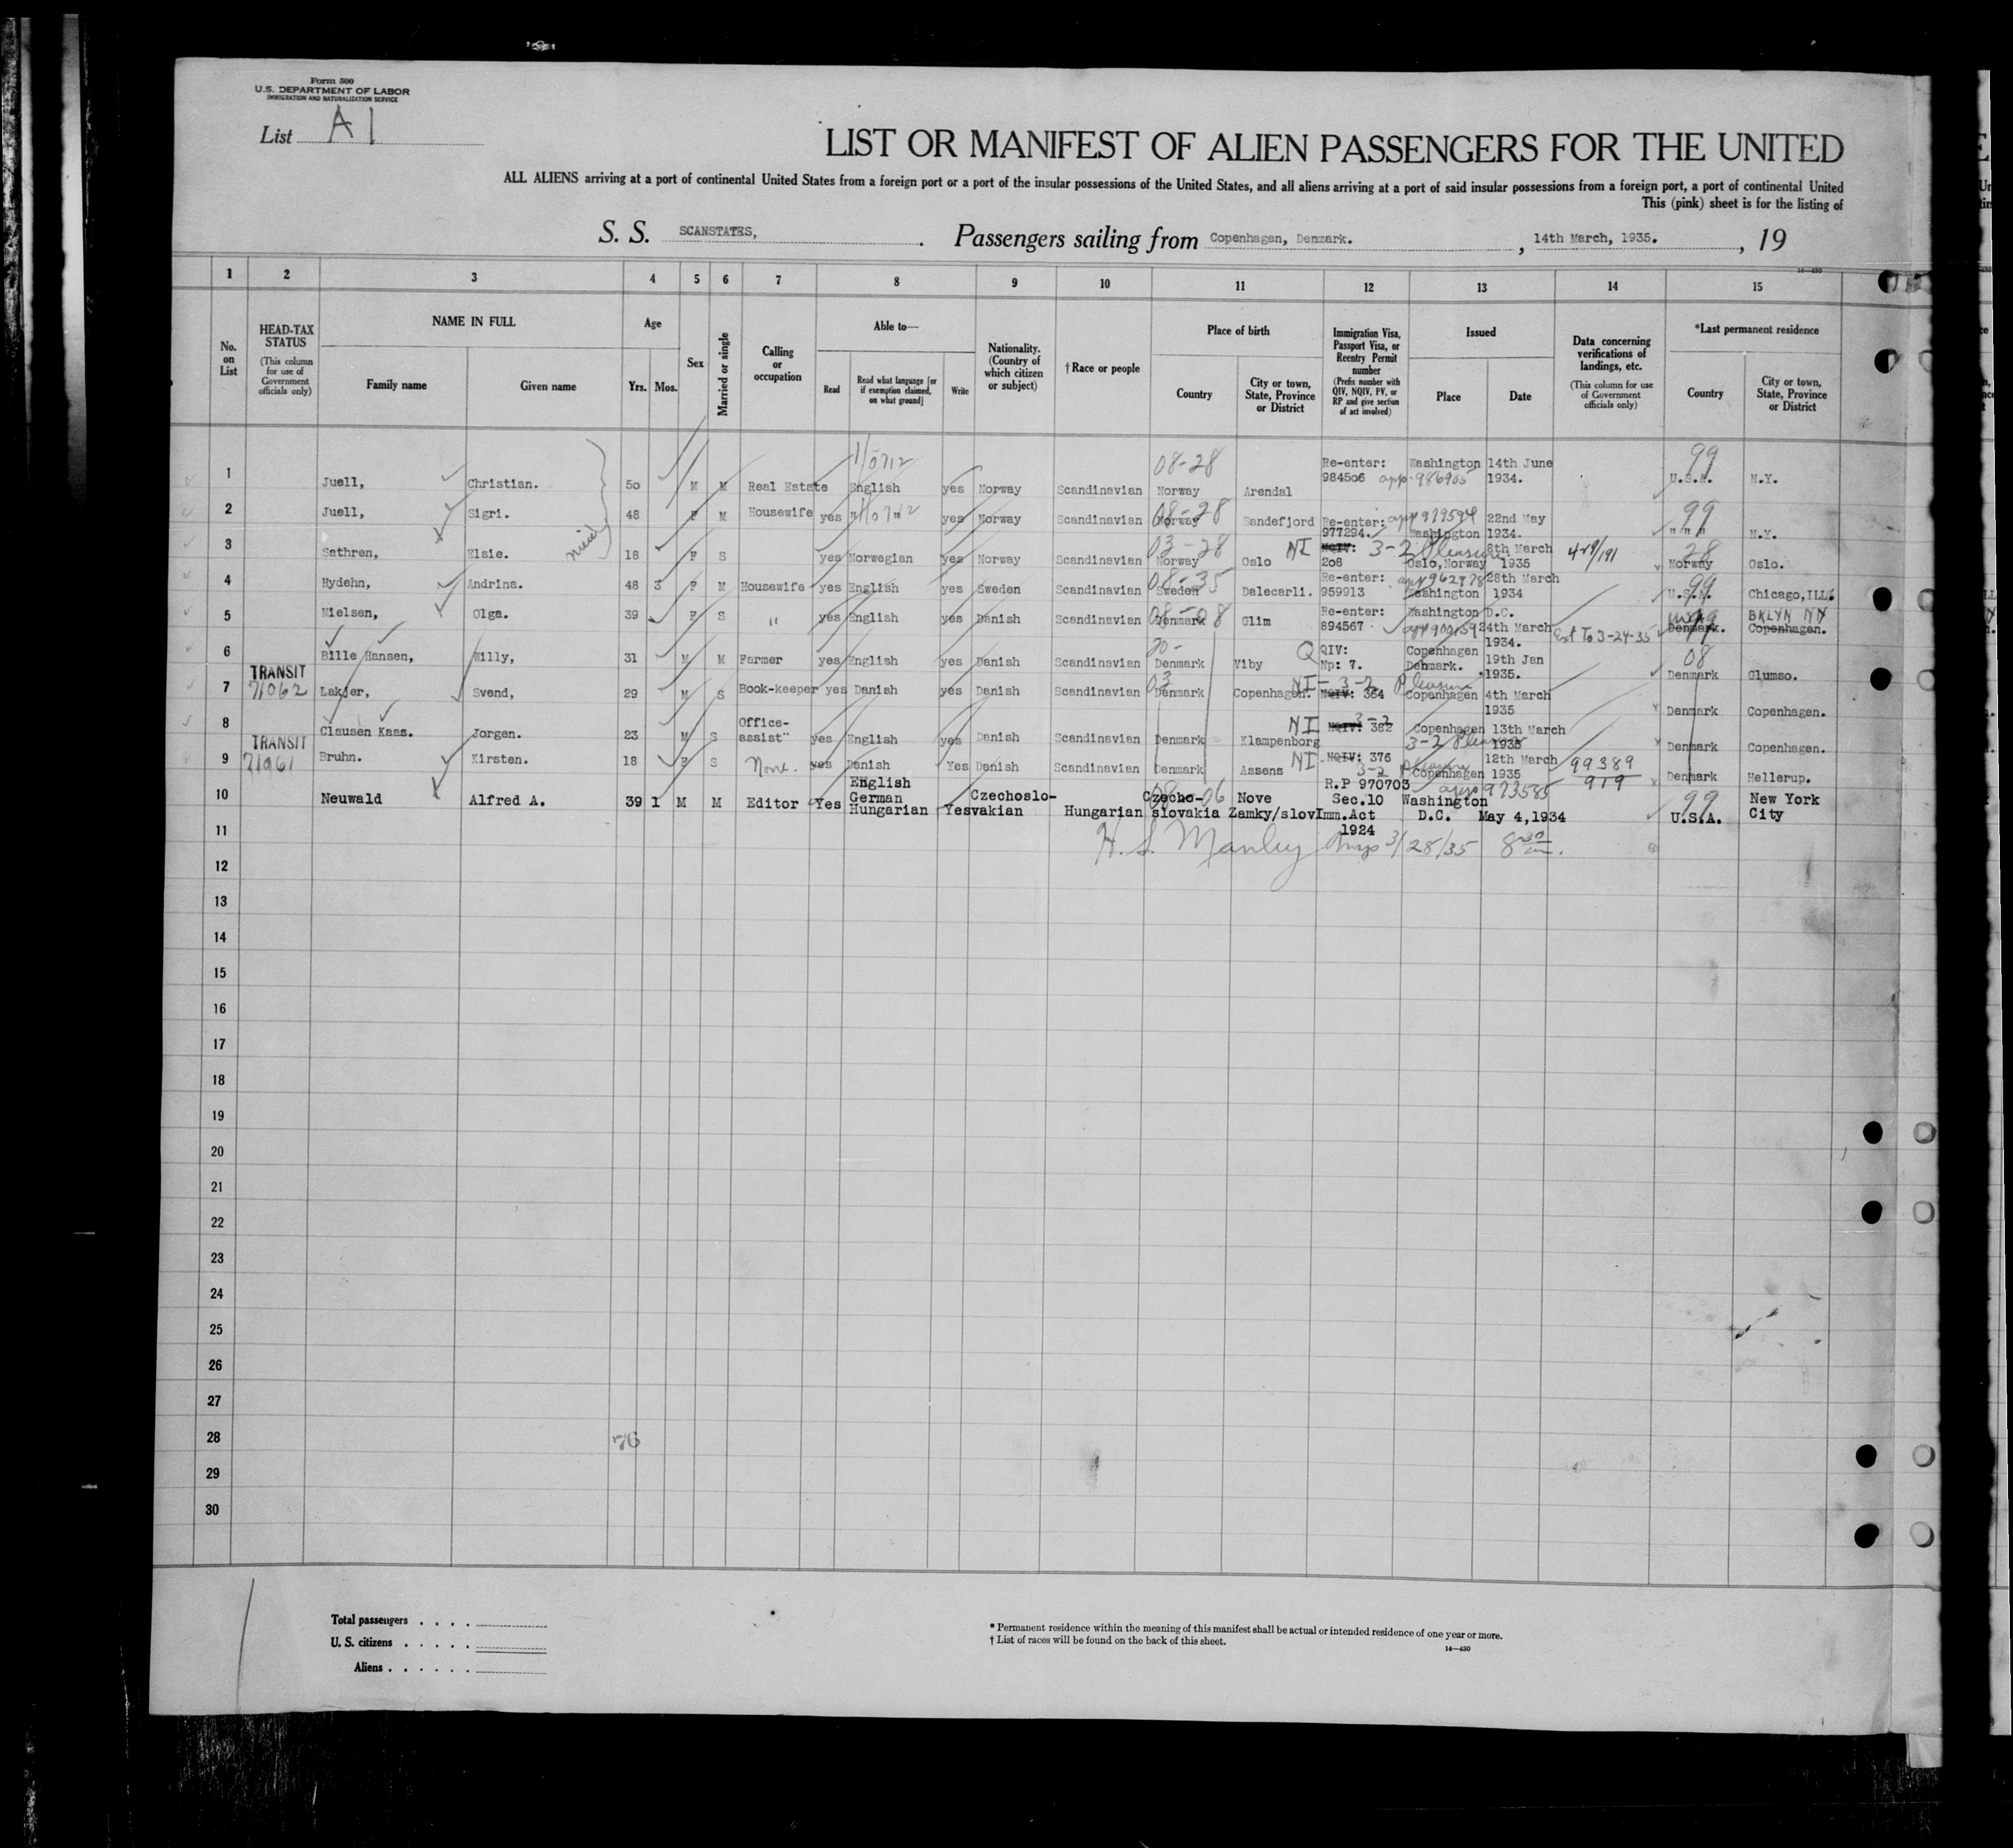 Form 500
U.S. DEPARTMENT OF LABOR
IMMIGRATION AND NATURALIZATION SERVICE
List A1
LIST OR MANIFEST OF ALIEN PASSENGERS FOR THE UNITED
ALL ALIENS arriving at a port of continental United States from a foreign port or a port of the insular possessions of the United States, and all aliens arriving at a port of said insular possessions from a foreign port, a port of continental United
This (pink) sheet is for the listing of
S. S. SCANSTATES, . Passengers sailing from Copenhagen, Denmark. , 14th March, 1935. , 19
14-430
1 2 3 4 5 6 7 8 9 10 11 12 13 14 15
No. on List
HEAD-TAX STATUS (This column for use of Government officials only)
NAME IN FULL
Family name Given name
Age
Yrs. Mos.
Sex
Married or single
Calling or occupation
Able to—
Read Read what language [or if exemption claimed, on what ground] Write
Nationality. (Country of which citizen or subject)
†Race or people
Place of birth
Country City or town, State, Province or District
Immigration Visa, Passport Visa, or Reentry Permit number (Prefix number with QIV, NQIV, PV, or RP and give section of act involved)
Issued
Place Date
Data concerning verifications of landings, etc. (This column for use of Government officials only)
*Last permanent residence
Country City or town, State, Province or District
1 Juell, Christian. 50 M M Real Estate English yes Norway Scandinavian 08-28 Norway Arendal Re-enter: 984506 app. 986905 Washington 14th June 1934. 99 U.S.A. N.Y.
2 Juell, Sigri. 48 F M Housewife yes " yes Norway Scandinavian 08-28 Norway Sandefjord Re-enter: 977294. app 979594 Washington 22nd May 1934. 99 " " " N.Y.
3 Sathren, Elsie. niece 18 F S yes Norwegian yes Norway Scandinavian 03-28 Norway Oslo NI NQIV: 208 3-2 Pleasure Oslo, Norway 8th March 1935 4-29/191 28 Norway Oslo.
4 Hydehn, Andrina. 48 3 F M Housewife yes English yes Sweden Scandinavian 08-35 Sweden Dalecarli. Re-enter: 959913 app 962978 Washington 28th March 1934 99 U.S.A. Chicago, ILL.
5 Nielsen, Olga. 39 F S " yes English yes Danish Scandinavian 08-08 Denmark Glim Re-enter: 894567 Washington D.C. app 900159 24th March 1934. Ext To 3-24-35 99 Denmark. BKLYN NY Copenhagen.
6 Bille Hansen, Willy, 31 M M Farmer yes English yes Danish Scandinavian 20- Denmark Viby Q QIV: Np: 7. Copenhagen Denmark. 19th Jan 1935. 08 Denmark Glumso.
7 TRANSIT 71062 Lakjer, Svend, 29 M S Book-keeper yes Danish yes Danish Scandinavian 03 Denmark Copenhagen. NI-3-2 NQIV: 364 Pleasure Copenhagen 4th March 1935 Denmark Copenhagen.
8 Clausen Kaas. Jorgen. 23 M S Office-assist" yes English yes Danish Scandinavian Denmark Klampenborg NI 3-2 NQIV: 382 Copenhagen 13th March 3-2 Pleasure 1935 Denmark Copenhagen.
9 TRANSIT 71061 Bruhn. Kirsten. 18 F S None. yes Danish Yes Danish Scandinavian Denmark Assens NI NQIV: 376 3-2 Pleasure Copenhagen 12th March 1935 99389 919 Denmark Hellerup.
10 Neuwald Alfred A. 39 1 M M Editor Yes English German Hungarian Yes Czechoslo-vakian Hungarian 08-06 Czecho-slovakia Nove Zamky/slov R.P 970703 Sec.10 Imm.Act 1924 app 973585 Washington D.C. May 4,1934 99 U.S.A. New York City
11 H. S. Manley Insp 3/28/35 8 30 am.
12
13
14
15
16
17
18
19
20
21
22
23
24
25
26
27
28 76
29
30
Total passengers . . . .
U. S. citizens . . . . .
Aliens . . . . . .
* Permanent residence within the meaning of this manifest shall be actual or intended residence of one year or more.
† List of races will be found on the back of this sheet.
14—430